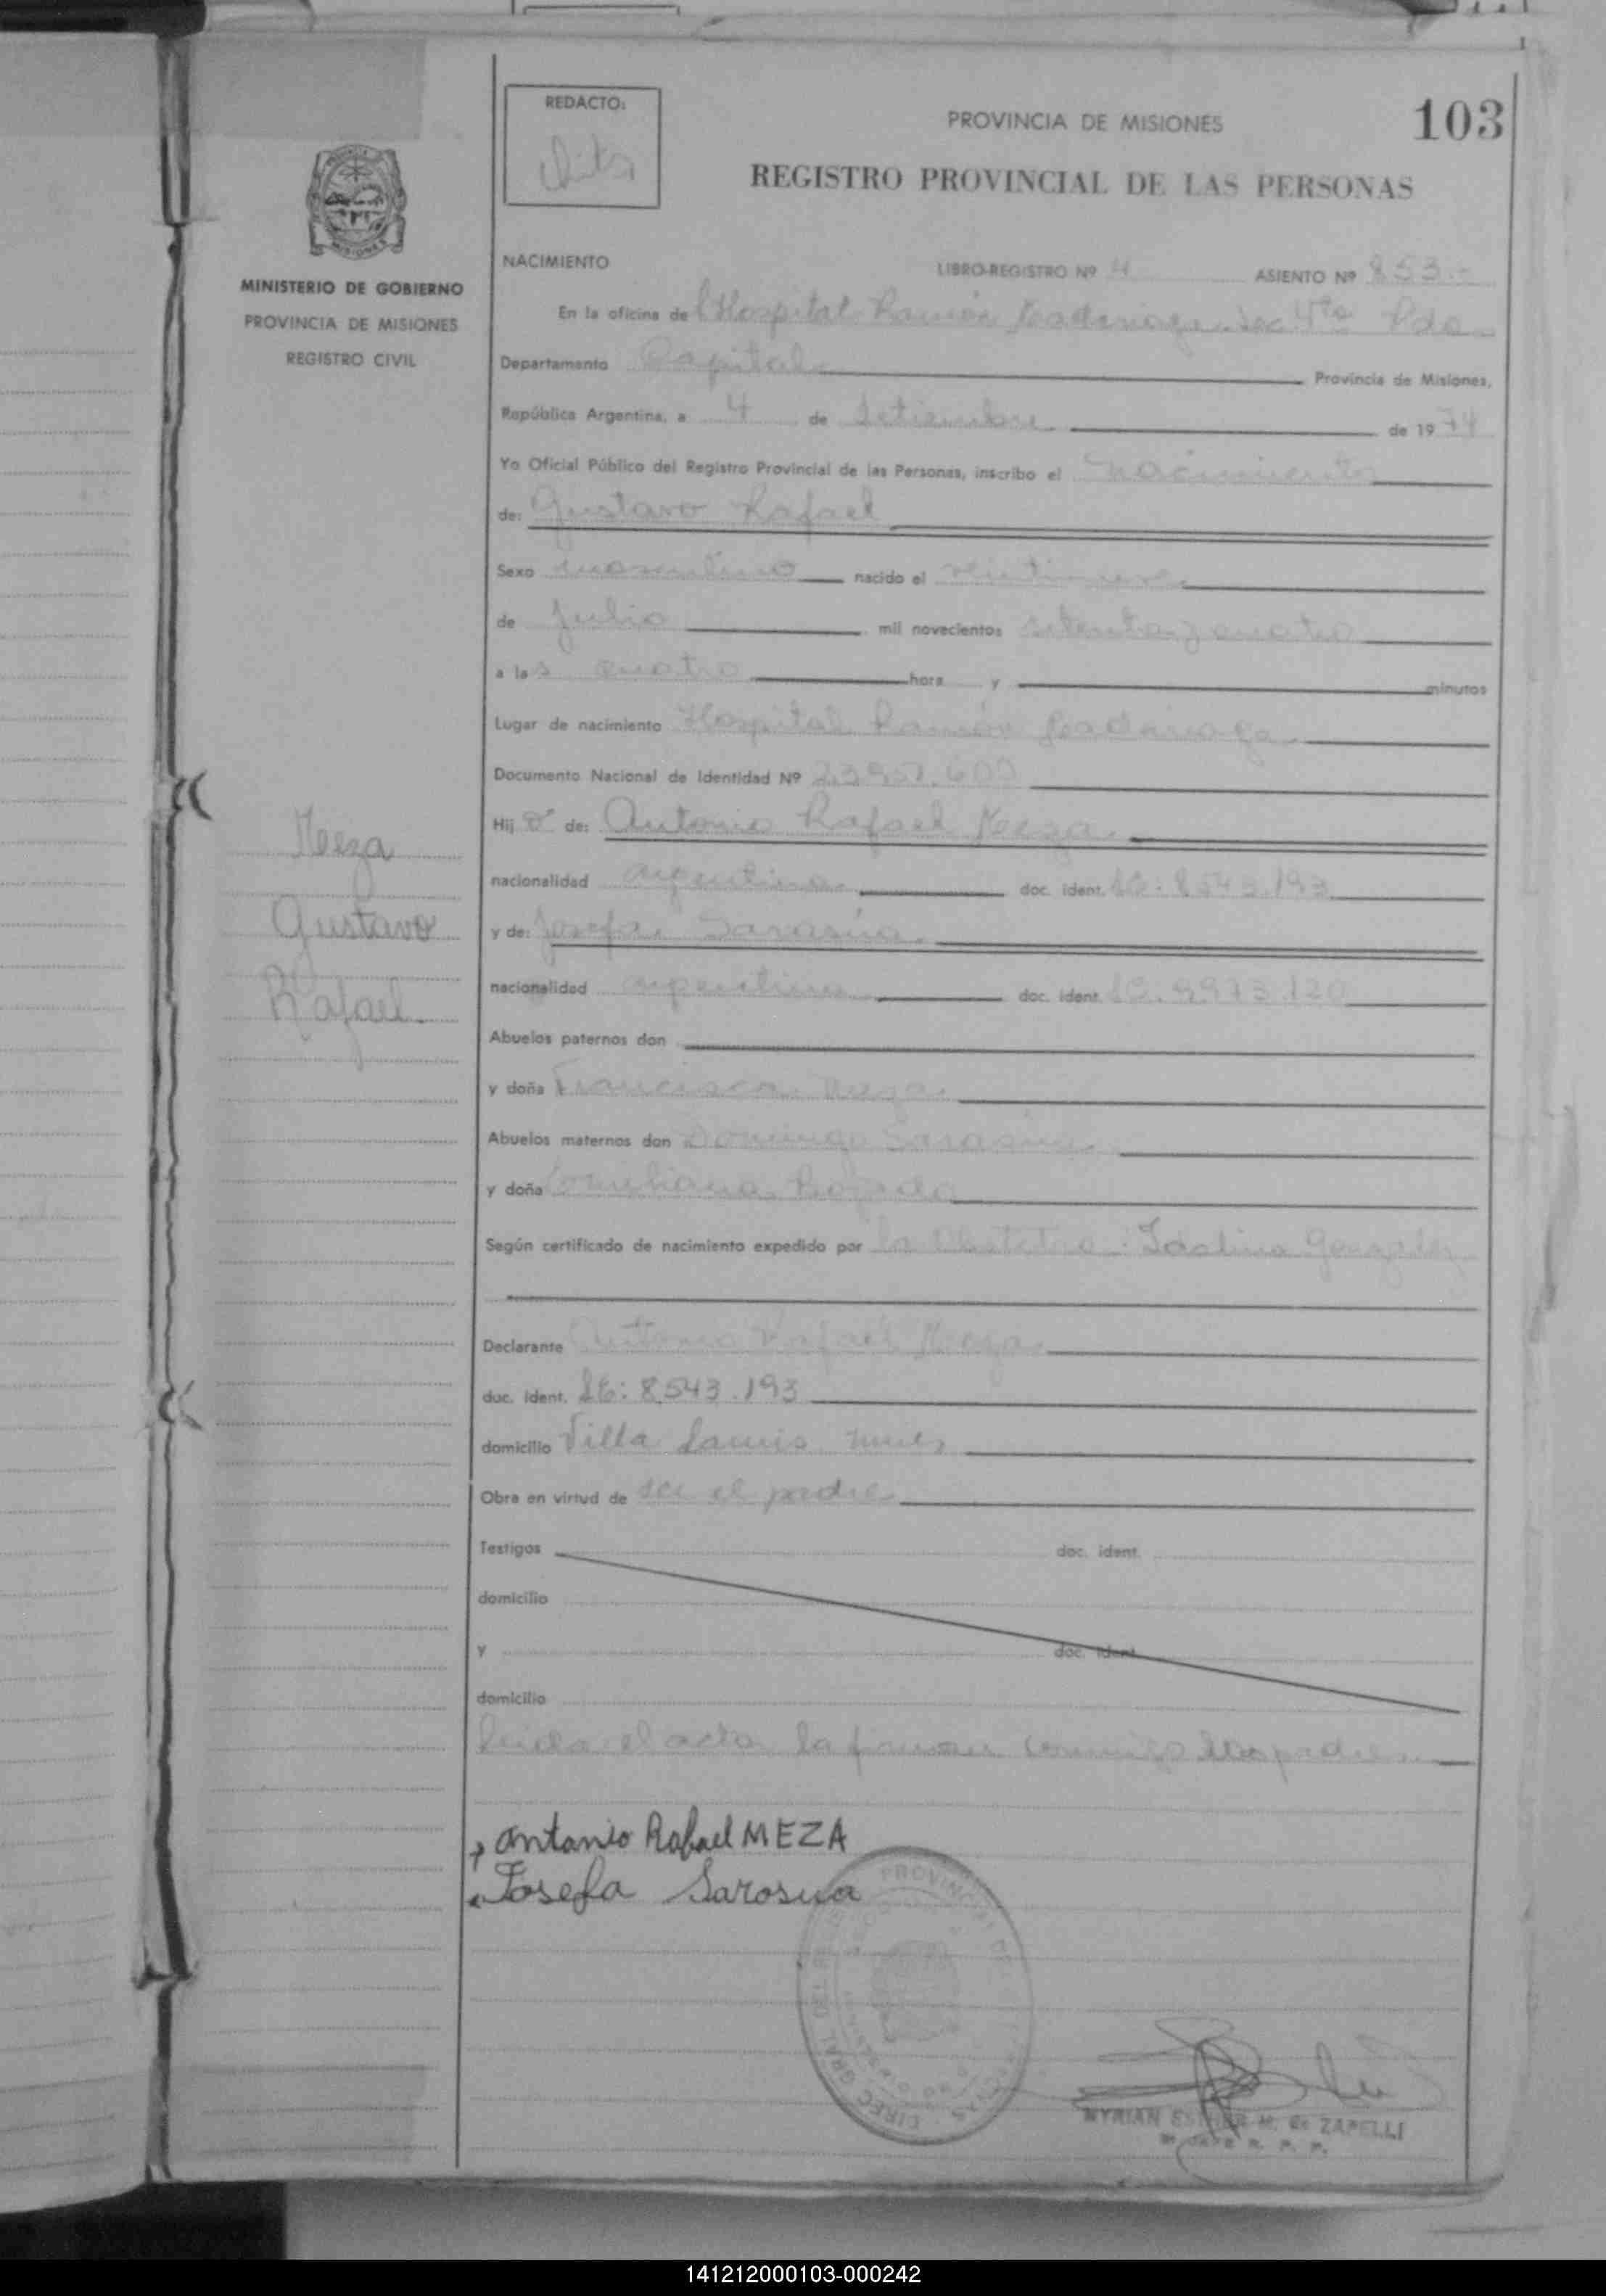 REDACTO:
PROVINCIA DE MISIONES
103
REGISTRO PROVINCIAL DE LAS PERSONAS
MISIONES
MINISTERIO DE GOBIERNO
PROVINCIA DE MISIONES
REGISTRO CIVIL
NACIMIENTO LIBRO-REGISTRO Nº 4 ASIENTO Nº 853.-
En la oficina del Hospital Ramón Madariaga Sec 4ta Pdas
Departamento Capital Provincia de Misiones,
República Argentina, a 4 de Setiembre de 1974
Yo Oficial Público del Registro Provincial de las Personas, inscribo el nacimiento
de: Gustavo Rafael
Sexo masculino nacido el veintinueve
de Julio mil novecientos setenta y cuatro
a las cuatro hora y minutos
Lugar de nacimiento Hospital Ramón Madariaga
Documento Nacional de Identidad Nº
Hijo de: Antonio Rafael Meza
nacionalidad argentina doc. ident. LE: 8543.193
y de: Josefa Sarasua
nacionalidad argentina doc. ident.
Abuelos paternos don
y doña Francisca Meza
Abuelos maternos don Domingo Sarasua
y doña
Según certificado de nacimiento expedido por la Obstetra: Idalina González
Declarante Antonio Rafael Meza
doc. ident. LE: 8.543.193
domicilio Villa Lanus
Obra en virtud de ser el padre
Testigos doc. ident.
domicilio
y doc. ident.
domicilio
Leida el acta la firman conmigo los padres
Meza
Gustavo
Rafael
Antonio Rafael MEZA
Josefa Sarosua
MYRIAN ESTHER M. de ZAPELLI
141212000103-000242